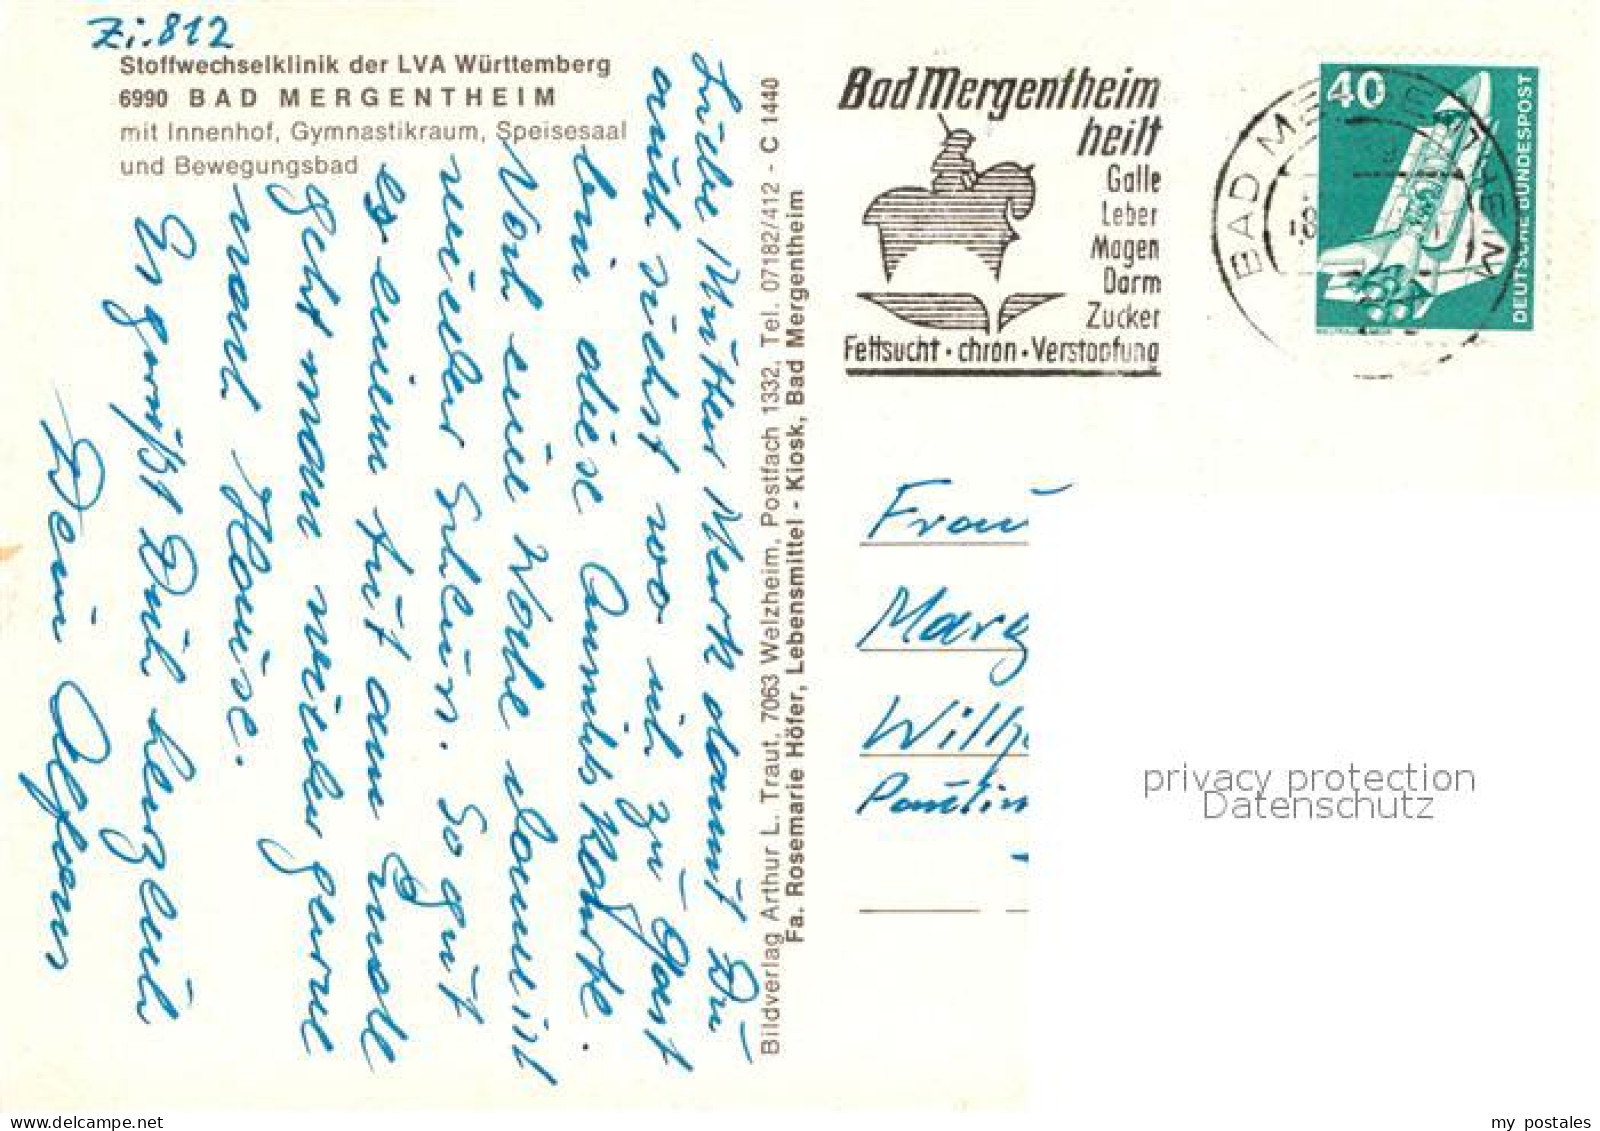 Zi. 812
Stoffwechselklinik der LVA Württemberg
6990 BAD MERGENTHEIM
mit Innenhof, Gymnastikraum, Speisesaal
und Bewegungsbad
Liebe Mutter Merk damit Du
auch siehst wo ich zu Gast
bin diese Ansichtskarte.
Noch eine Woche dann ist
wieder Schluss. So gut
es einem tut am Ende
geht man wieder gerne
nach Hause.
Es grüßt Dich herzlich
Dein Alfons
Bildverlag Arthur L. Traut, 7063 Welzheim, Postfach 1332, Tel. 07182/412 - C 1440
Fa. Rosemarie Höfer, Lebensmittel - Kiosk, Bad Mergentheim
Bad Mergentheim
heilt
Galle
Leber
Magen
Darm
Zucker
Fettsucht · chron · Verstopfung
BAD MERGENTHEIM
40
DEUTSCHE BUNDESPOST
Frau
Marg
Wilh
Paulin
privacy protection
Datenschutz
www.delcampe.net
my_postales